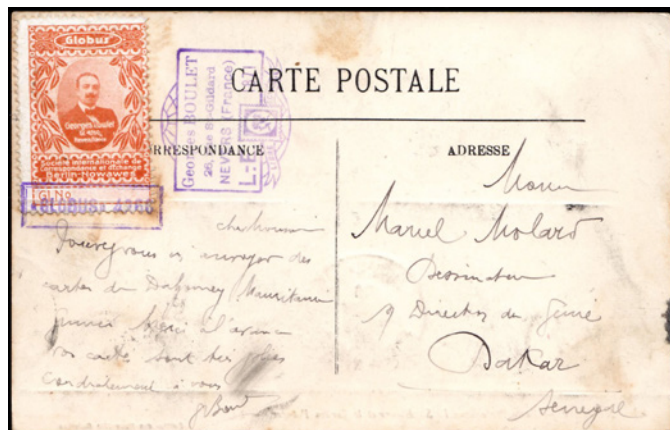 Globus
Georges Boulet
Société Internationale de
Correspondance et d'échange
Berlin-Nowawes
Gl. No.
"GLOBUS" 4266
Georges BOULET
26, St-Gildard
NEVERS (France)
L-E
CARTE POSTALE
CORRESPONDANCE
ADRESSE
cher Monsieur
Pouvez vous m'envoyer des
cartes du Dahomey, Mauritanie
Guinée Merci à l'avance
vos cartes sont très jolies
cordialement à vous
Marcel Molard
Dessinateur
Direction du Génie
Dakar
Senegal